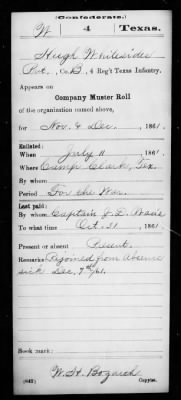 (Confederate.)
W 4 Texas.
Hugh Whitesides
Pvt, Co. B, 4 Reg't Texas Infantry.
Appears on
Company Muster Roll
of the organization named above,
for Nov. & Dec., 1861.
Enlisted:
When July 11, 1861.
Where Camp Clark, Tex.
By whom
Period For the War.
Last paid:
By whom Captain
To what time Oct. 31, 1861.
Present or absent Present.
Remarks: Rejoined from Absence
sick Dec. 7th/61.
Book mark:
W. H.
(642) Copyist.